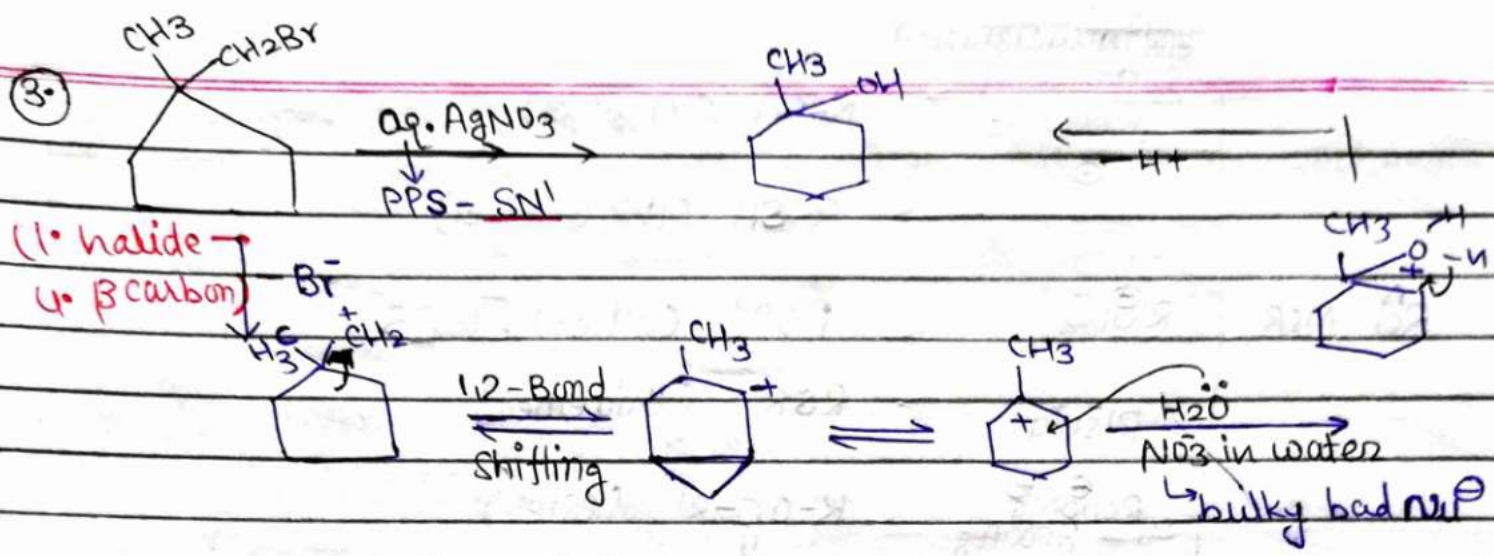 CH3 CH2Br
3.
aq. AgNO3
PPS - SN1
CH3 OH
- H+
(1° halide
4° β carbon)
- Br-
H3C +CH2
1,2-Bond
Shifting
CH3
+
CH3
+
H2Ö
NO3- in water
↳ bulky bad Nu⊖
CH3 O+ -H
-H